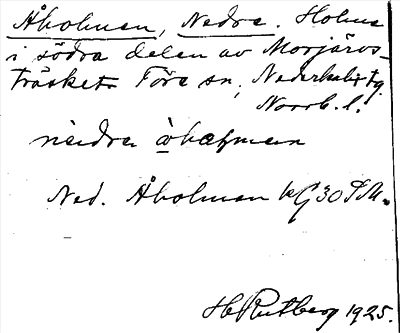 Åholmen, Nedra. Holme
i södra delen av Morjärvs-
träsket Töre sn, Nederkalix tg,
Norrb. l.
Ned. Åholmen kG30 SM.
H Rutberg 1925.